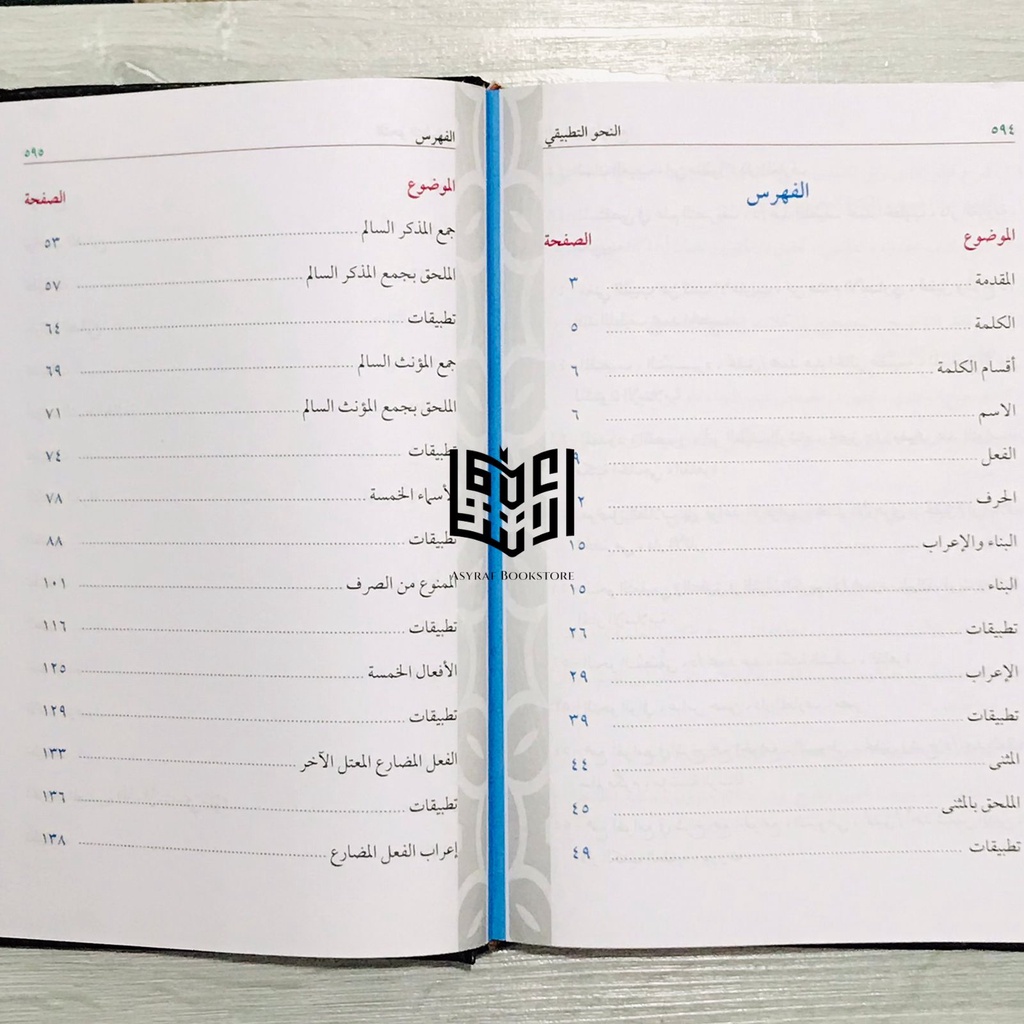 ٥٩٤ النحو التطبيقي
الفهرس
الموضوع الصفحة
المقدمة ٣
الكلمة ٥
أقسام الكلمة ٦
الاسم ٦
الفعل ٩
الحرف
البناء والإعراب ١٥
البناء ١٥
تطبيقات ٢٦
الإعراب ٢٩
تطبيقات ٣٩
المثنى ٤٤
الملحق بالمثنى ٤٥
تطبيقات ٤٩
الفهرس ٥٩٥
الموضوع الصفحة
جمع المذكر السالم ٥٣
الملحق بجمع المذكر السالم ٥٧
تطبيقات ٦٤
جمع المؤنث السالم ٦٩
الملحق بجمع المؤنث السالم ٧١
تطبيقات ٧٤
الأسماء الخمسة ٧٨
تطبيقات ٨٨
الممنوع من الصرف ١٠١
تطبيقات ١١٦
الأفعال الخمسة ١٢٥
تطبيقات ١٢٩
الفعل المضارع المعتل الآخر ١٣٣
تطبيقات ١٣٦
إعراب الفعل المضارع ١٣٨
ASYRAF BOOKSTORE